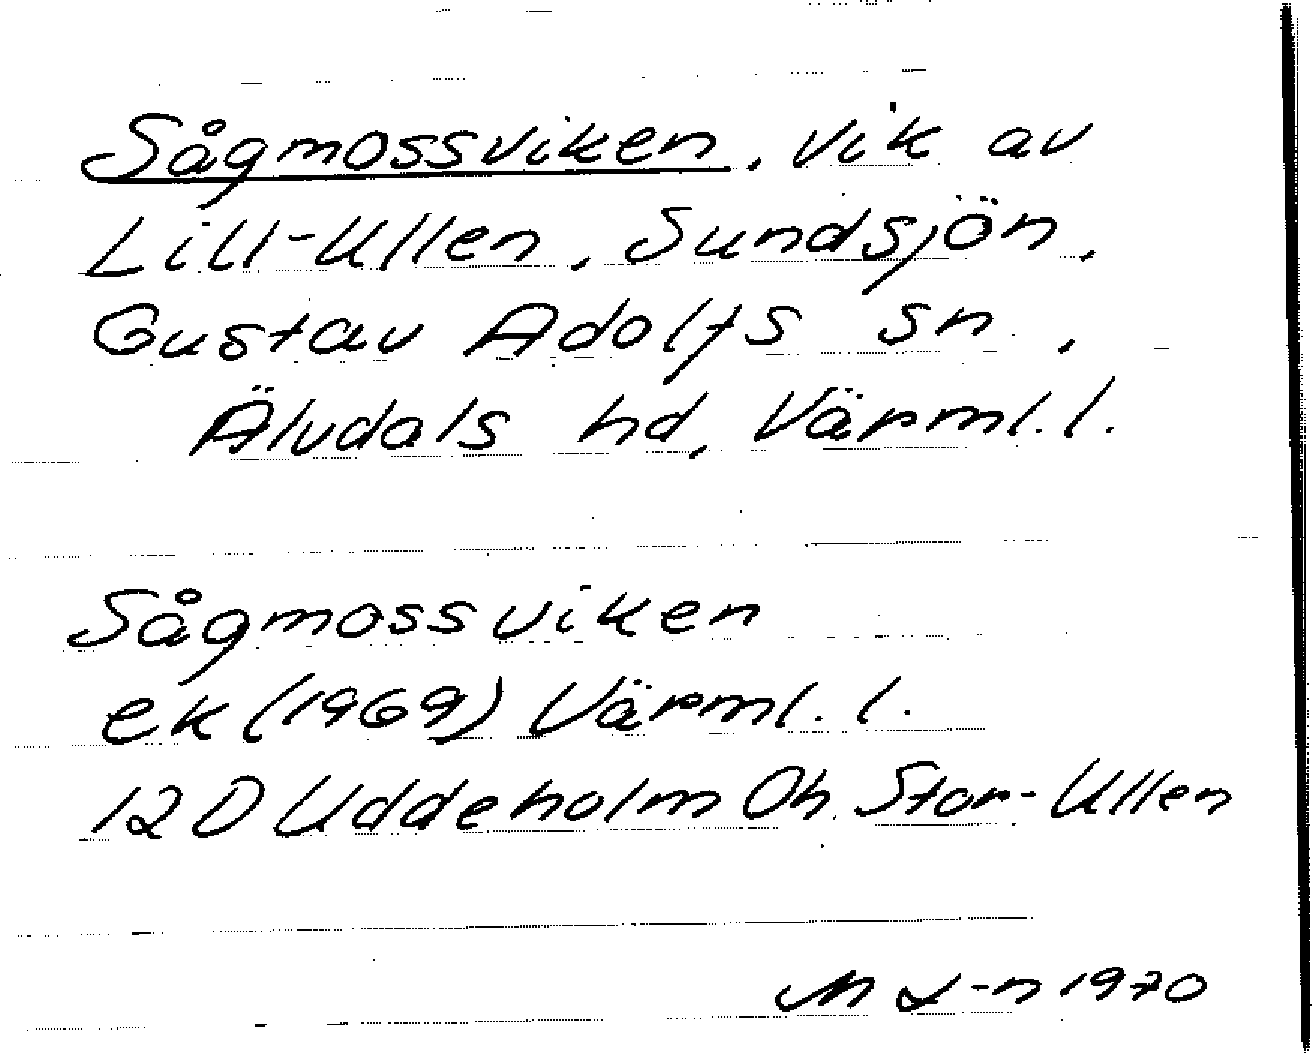 Sågmossviken, vik av
Lill-Ullen, Sundsjön,
Gustav Adolfs sn.,
Älvdals hd, Värml. l.
Sågmossviken
ek (1969) Värml. l.
12 D Uddeholm Oh Stor-Ullen
1970